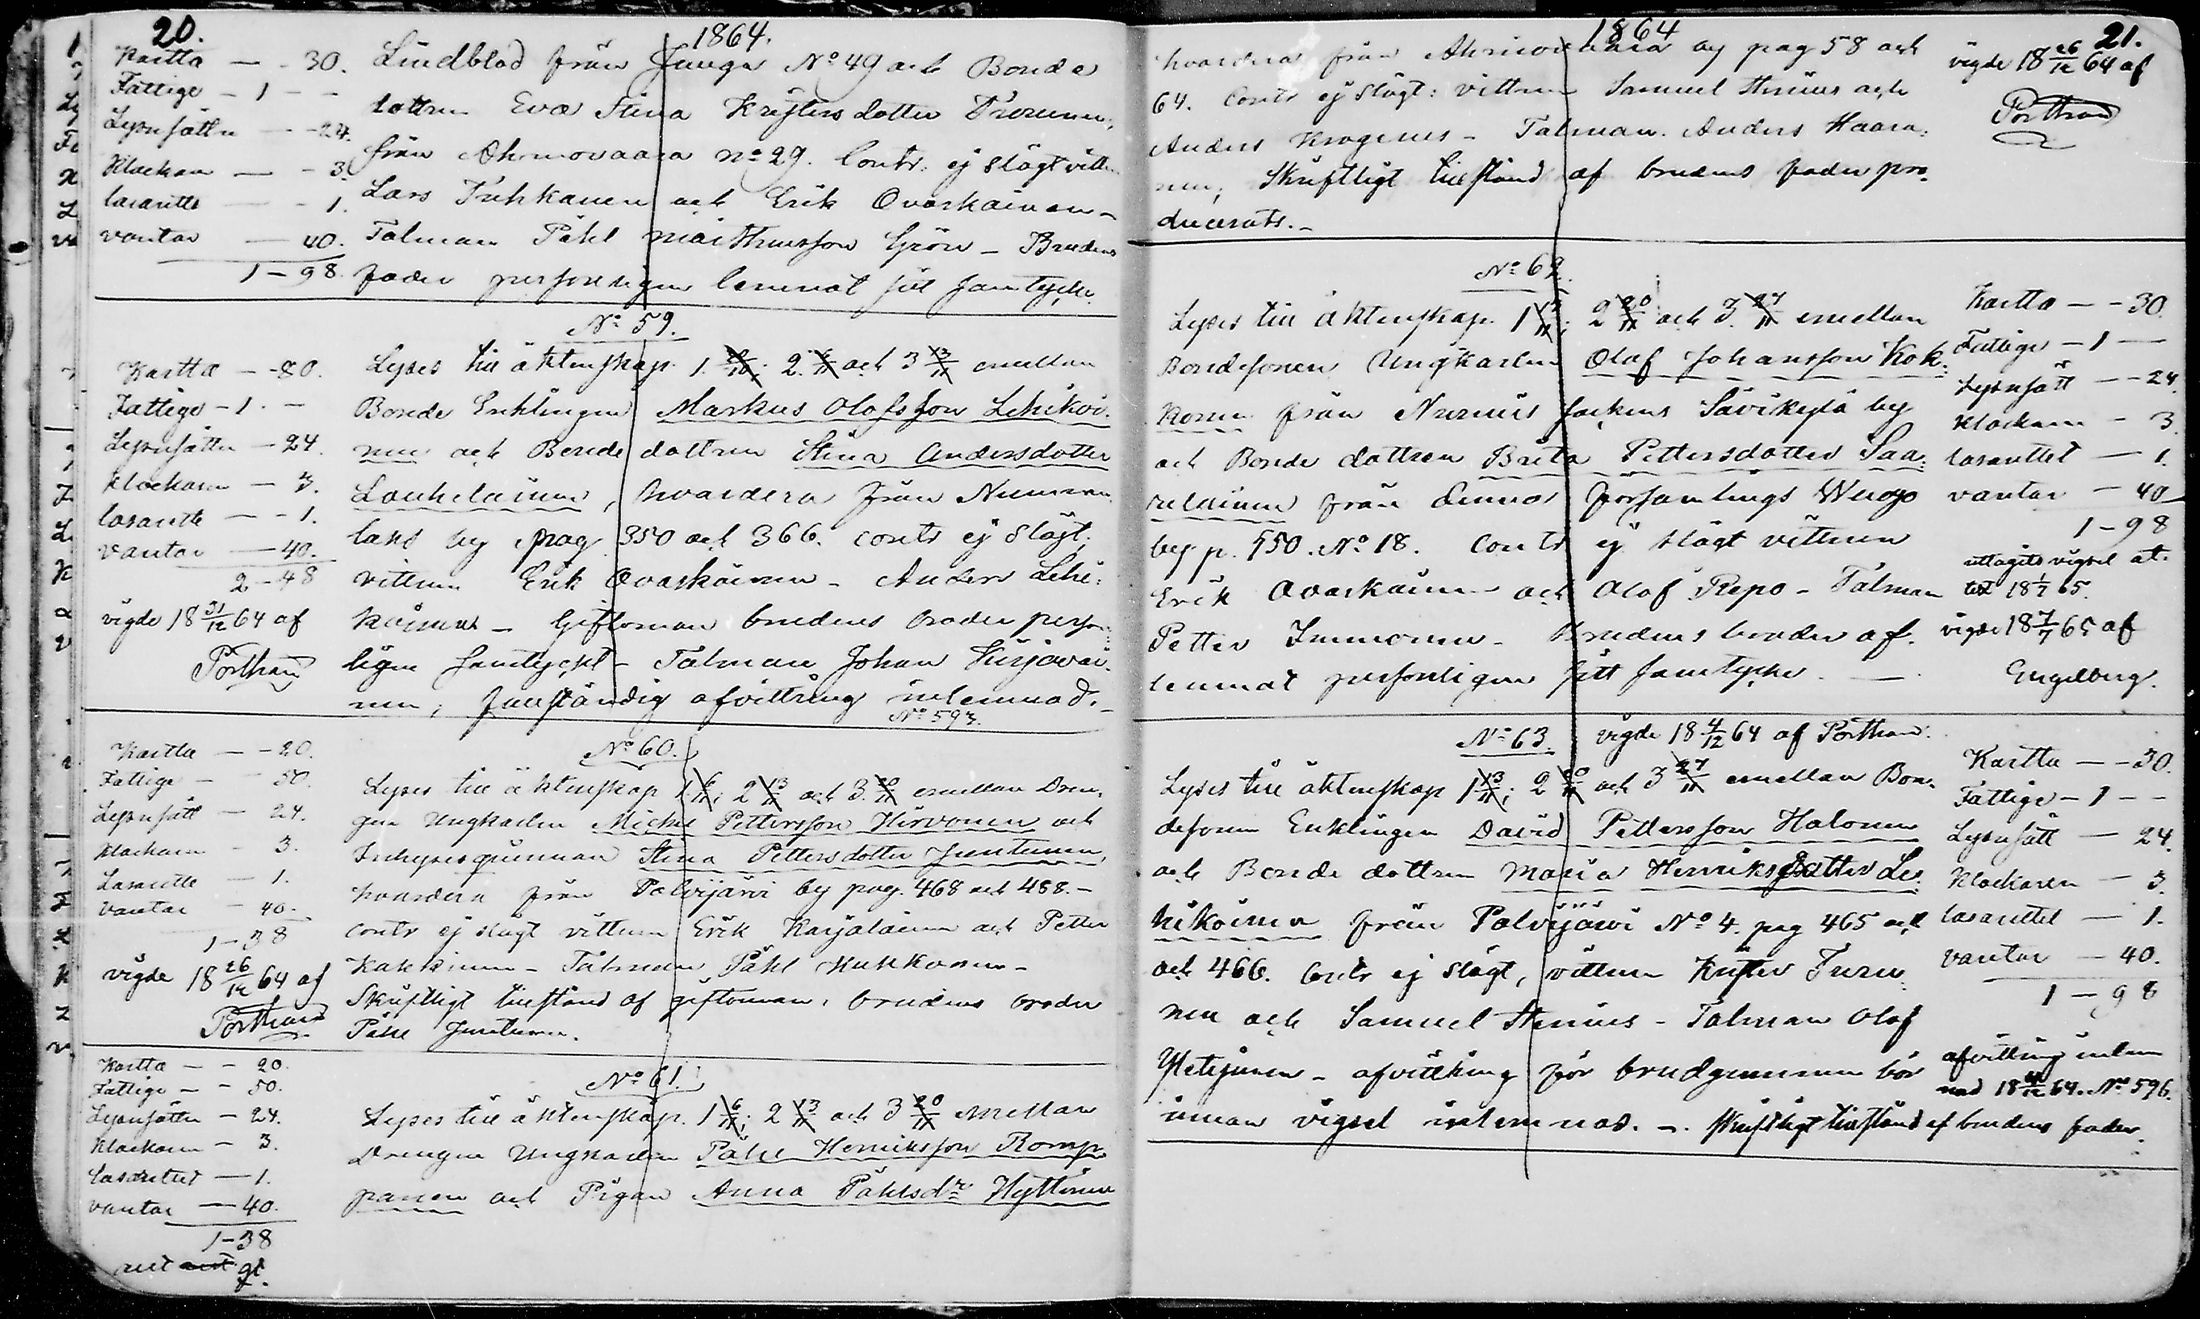 20.
1864.
Kartta — - 30.
Fattige - 1 - -
Lysnsättn - - 24.
Klockan — - 3.
lasarette — - 1.
vantar — 40.
1 - 98
Lindblad från Junga No 49 och Bonde
dottren Eva Stina Kristersdotter
från Ahmovaara no 29. Contr. ej slägt vittn
Lars Puhkanen och Erik Ovaskainen -
Talman Påhl Matthusson Grön - Brudens
fader personligen lemnat sit samtycke.
No 59.
Kartta - - 80.
Fattige - 1. -
Lysnsättn - 24.
Klockaren - 3.
lasarette - - 1.
vantar — 40.
2 - 48
vigde 18 31/12 64 af
Porthan
Lyses till äktenskap 1. 30/10; 2. 6/11 och 3 13/11 emellan
Bonde Enklingen Markus Olofsson Lehikoi-
nen och Bonde dottren Stina Andersdotter
Laukelainen, hvardera från
laks by pag. 350 och 366. contr ej slägt;
vittnen Erik Ovaskainen - Anders Lehi-
koinen - Giftoman brudens broder person-
ligen samtyckt - Talman Johan
nen; fullständig afvittring inlemnad. -
No 593.
No 60.
Kartta — - 20.
Fattige - - 50.
Lysnsätt - 24.
Klockaren - 3.
Lasarette - 1.
Vantar - 40.
1 - 38
vigde 18 26/12 64 af
Porthan
Lyses till äktenskap 1 6/11; 2 13/11 och 3. 20/11 emellan Dren-
gen Ungkarlen Michel Pettersson Hirvonen och
Inhysesqvinnan Stina Pettersdotter Juntunen,
hvardera från Polvijärvi by pag. 468 och 488. -
contr ej slägt vittnen Erik Karjalainen och Petter
Kakkinen - Talman Påhl Mukkonen -
Skriftligt tillstånd af giftoman, brudens broder
Påhl Juntunen.
Kartta — - 20.
Fattige - - 50.
Lysnsättn - 24.
Klockaren - 3.
lasarettet — 1.
vantar — 40.
1 - 38
No 61.
Lyses till äktenskap. 1 6/11; 2 13/11 och 3 20/11 emellan
Drengen Ungkarlen Påhl Henriksson Romp-
panen och Pigan Anna Påhlsdr Hyttinen
1864
21.
hvardera från Ahmovaara by pag 58 och
64. Contr ej slägt: vittnen Samuel Stenius och
Anders Krogerus - Talman Anders Haara-
nen; Skriftligt tillstånd af brudens fader pro-
ducerats. -
vigde 18 26/12 64 af
Porthan
No 62.
Lyses till äktenskap 1 13/11; 2 20/11 och 3. 27/11 emellan
Bondesonen Ungkarlen Olof Johansson Kok-
konen från Nurmis sockens Savikylä by
och Bonde dottren Brita Pettersdotter Saa-
relainen från Eno församlings Wuogo
by p. 550. No 18. Contr ej slägt vittnen
Erik Ovaskainen och Olof Repo - Talman
Petter Immonen - Brudens broder af-
lemnat personligen sitt samtycke. —
Kartta — - 30.
Fattige - 1 —
Lysnsätt - - 24.
Klockaren - 3
lasarettet — 1.
vantar - 40
1 - 98
uttagits vigsel at-
test 18 1/7 65.
vigde 18 7/7 65 af
Engelberg.
No 63
vigde 18 4/12 64 af Porthan.
Lyses till äktenskap 1 13/11; 2 20/11 och 3 27/11 emellan Bon-
desonen Enklingen David Pettersson Halonen
och Bonde dottren Maria Henriksdotter Le-
hikoinen från Polvijärvi No 4. pag 465 och
och 466. Contr ej slägt, vittnen Krister Turu-
nen och Samuel Stenius - Talman Olof
- afvittring för brudgummen bör
innan vigsel inlemnas. -. Skriftligt tillstånd af brudens fader.
Kartta — - 30.
Fattige - 1 - -
Lysnsätt — 24.
Klockaren - 3.
lasarettet — 1.
vantar — 40.
1 - 98
afvittring inlem
nad 18 4/12 64. No 596.